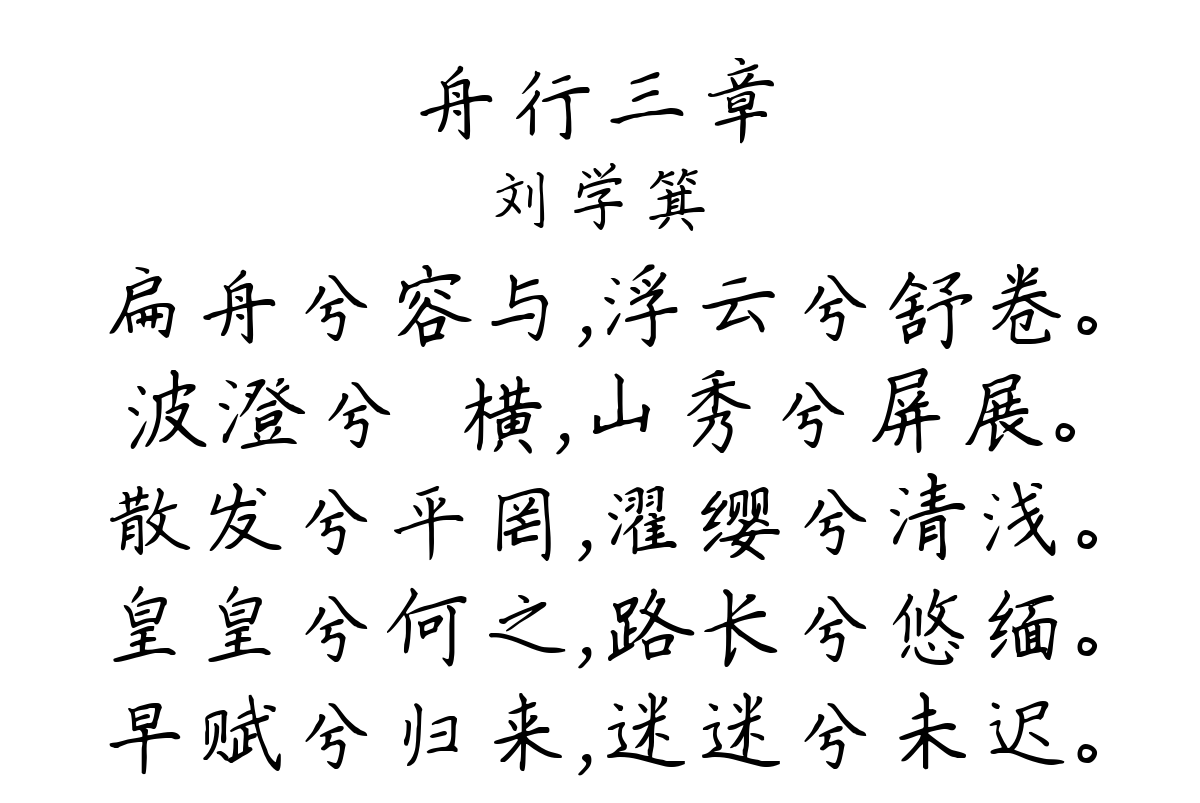 舟行三章
刘学箕
扁舟兮容与,浮云兮舒卷。
波澄兮 横,山秀兮屏展。
散发兮平罔,濯缨兮清浅。
皇皇兮何之,路长兮悠缅。
早赋兮归来,迷迷兮未迟。